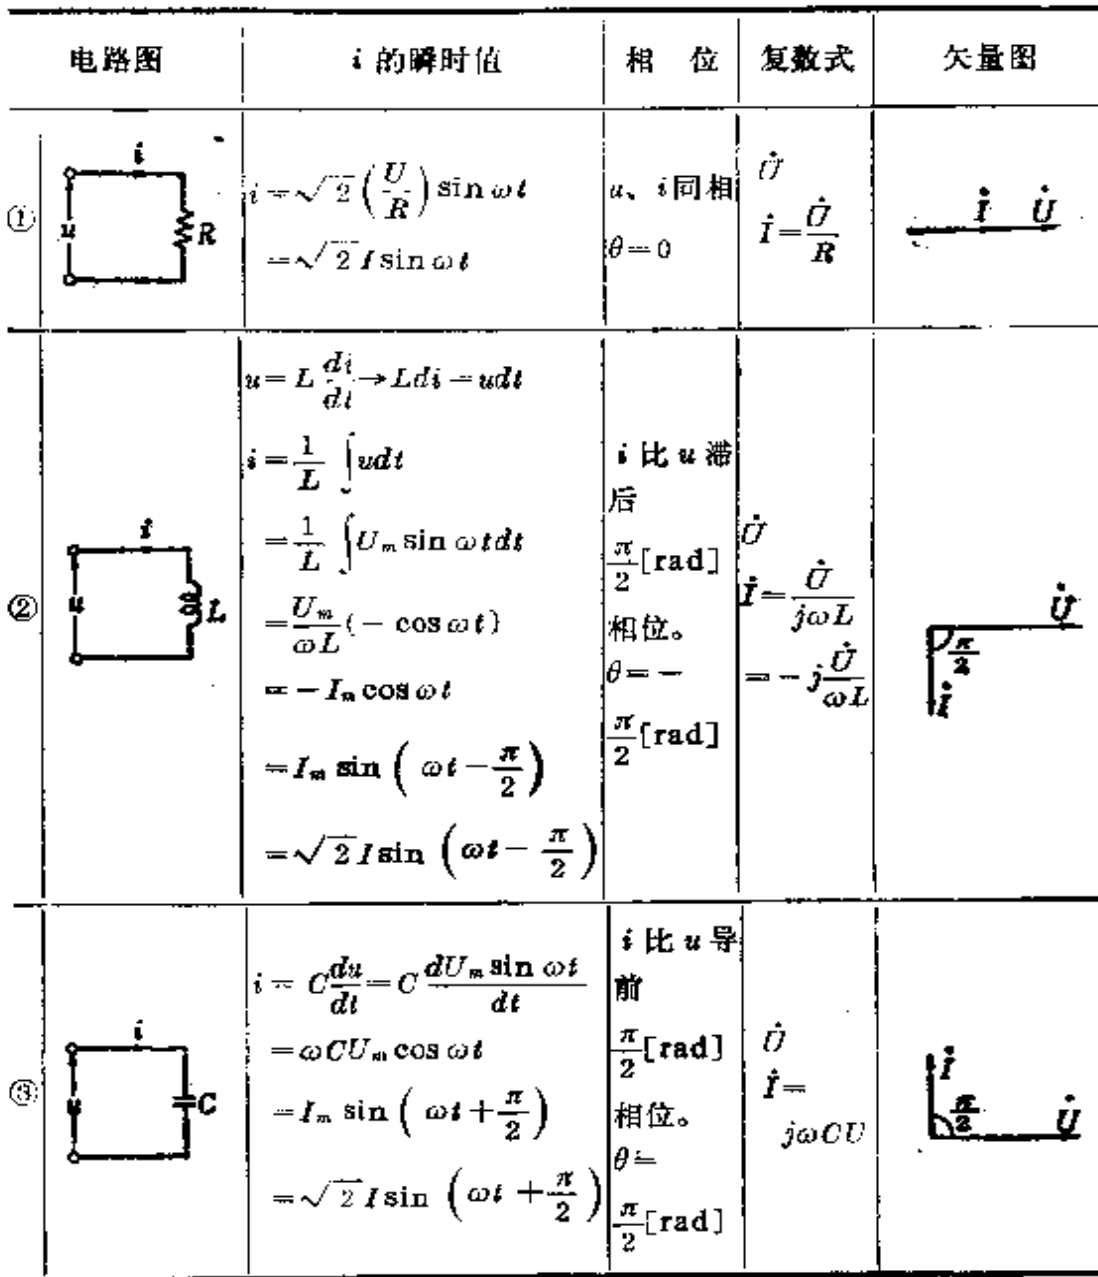 电路图 i 的瞬时值 相 位 复数式 矢量图
①
i
u
R
i=√2(U/R)sin ωt
=√2 I sin ωt
u、i同相
θ=0
U̇
İ=U̇/R
İ U̇
②
i
u
L
u=L di/dt→Ldi=udt
i=1/L ∫udt
=1/L ∫U_m sin ωtdt
=U_m/ωL(-cos ωt)
=-I_m cos ωt
=I_m sin(ωt-π/2)
=√2 I sin(ωt-π/2)
i 比 u 滞
后
π/2[rad]
相位。
θ=-
π/2[rad]
U̇
İ=U̇/jωL
=-jU̇/ωL
U̇
π/2
İ
③
i
u
C
i=C du/dt=C dU_m sin ωt/dt
=ωCU_m cos ωt
=I_m sin(ωt+π/2)
=√2 I sin(ωt+π/2)
i 比 u 导
前
π/2[rad]
相位。
θ=
π/2[rad]
U̇
İ=
jωCU
İ
π/2
U̇